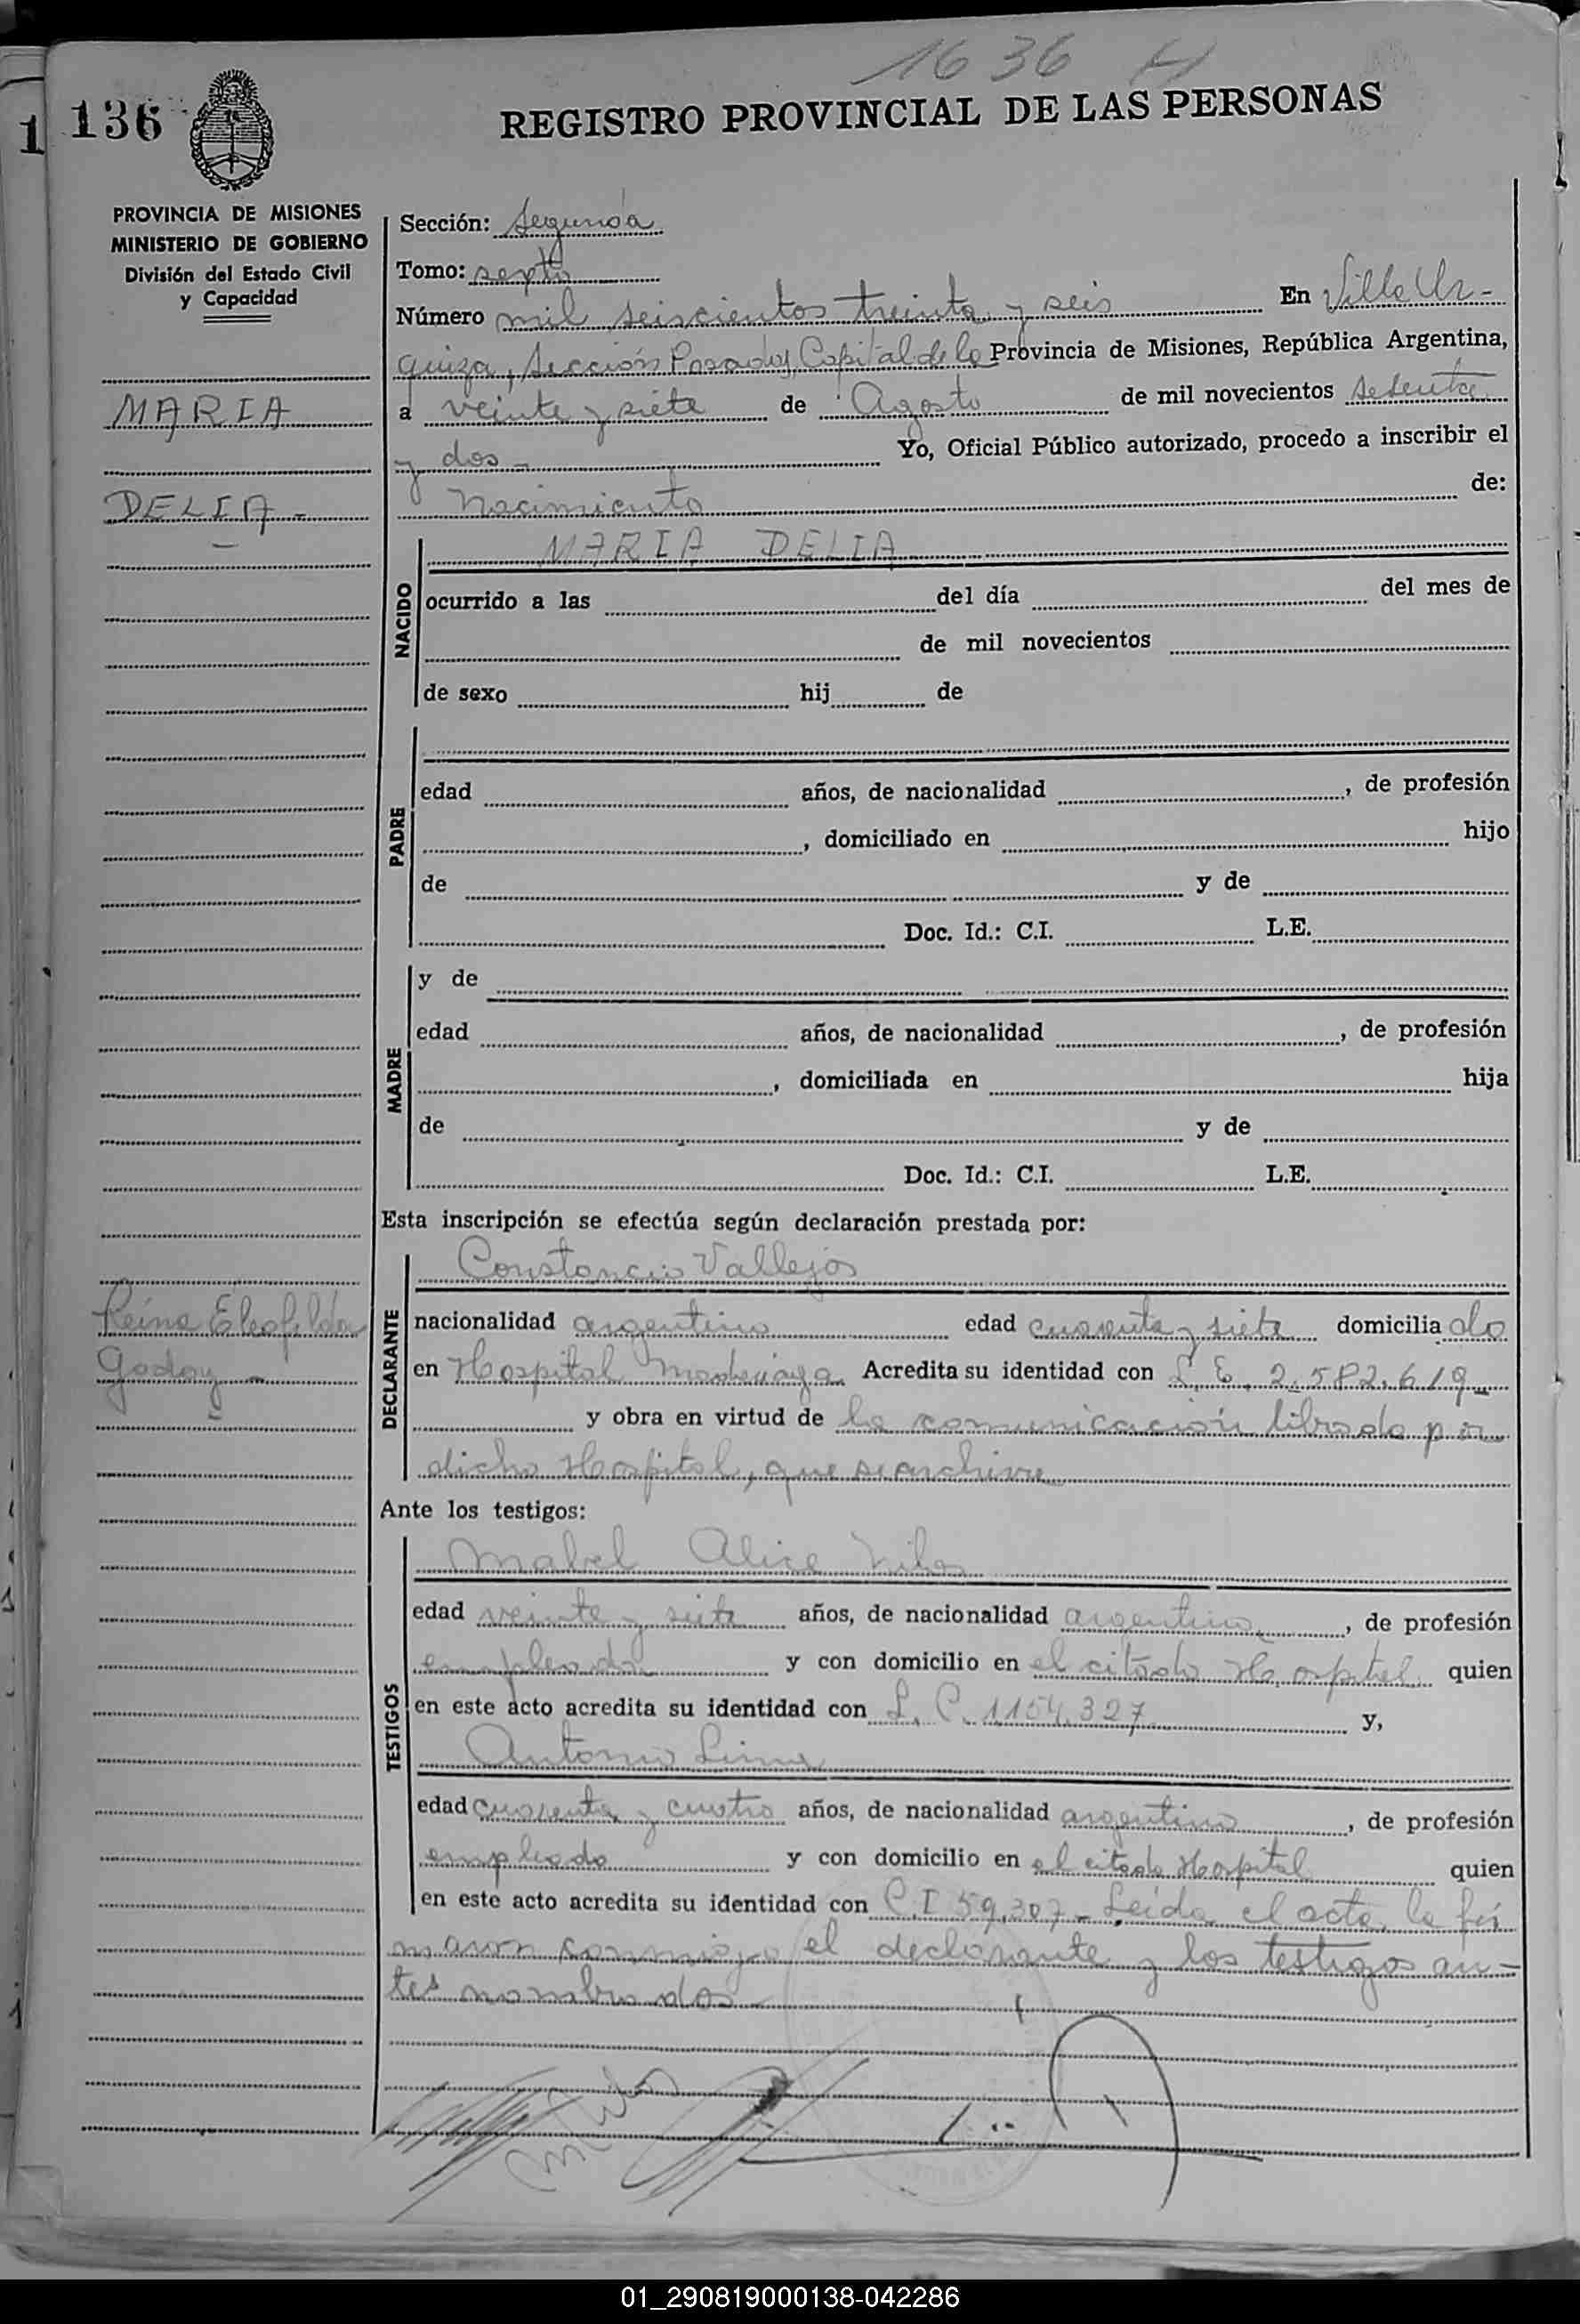 1636
136
1
REGISTRO PROVINCIAL DE LAS PERSONAS
PROVINCIA DE MISIONES
MINISTERIO DE GOBIERNO
División del Estado Civil
y Capacidad
MARIA
DELIA -
Reina Eleofilda
Godoy -
Sección: Segunda
Tomo: septo
Número mil seiscientos treinta y seis En Villa Ur-
quiza, Sección Posadas, Capital de la Provincia de Misiones, República Argentina,
a veinte y siete de Agosto de mil novecientos setenta
y dos - Yo, Oficial Público autorizado, procedo a inscribir el
Nacimiento de:
NACIDO
MARIA DELIA
ocurrido a las del día del mes de
de mil novecientos
de sexo hij de
PADRE
edad años, de nacionalidad , de profesión
, domiciliado en hijo
de y de
Doc. Id.: C.I. L.E.
MADRE
y de
edad años, de nacionalidad , de profesión
, domiciliada en hija
de y de
Doc. Id.: C.I. L.E.
Esta inscripción se efectúa según declaración prestada por:
DECLARANTE
Constancio Vallejos
nacionalidad argentino edad cuarenta y siete domicilia do
en Hospital Madariaga Acredita su identidad con L.E. 2.582.619-
y obra en virtud de la comunicación librada por
dicho Hospital, que se archiva
Ante los testigos:
TESTIGOS
Mabel Alice
edad veinte y siete años, de nacionalidad argentina, de profesión
empleada y con domicilio en el citado Hospital quien
en este acto acredita su identidad con L.C. 1.154.327 y,
Antonio
edad cuarenta y cuatro años, de nacionalidad argentino, de profesión
empleado y con domicilio en el citado Hospital quien
en este acto acredita su identidad con C.I 59.307- Leída el acta, la fir
maron conmigo el declarante y los testigos an-
tes nombrados -
01_290819000138-042286